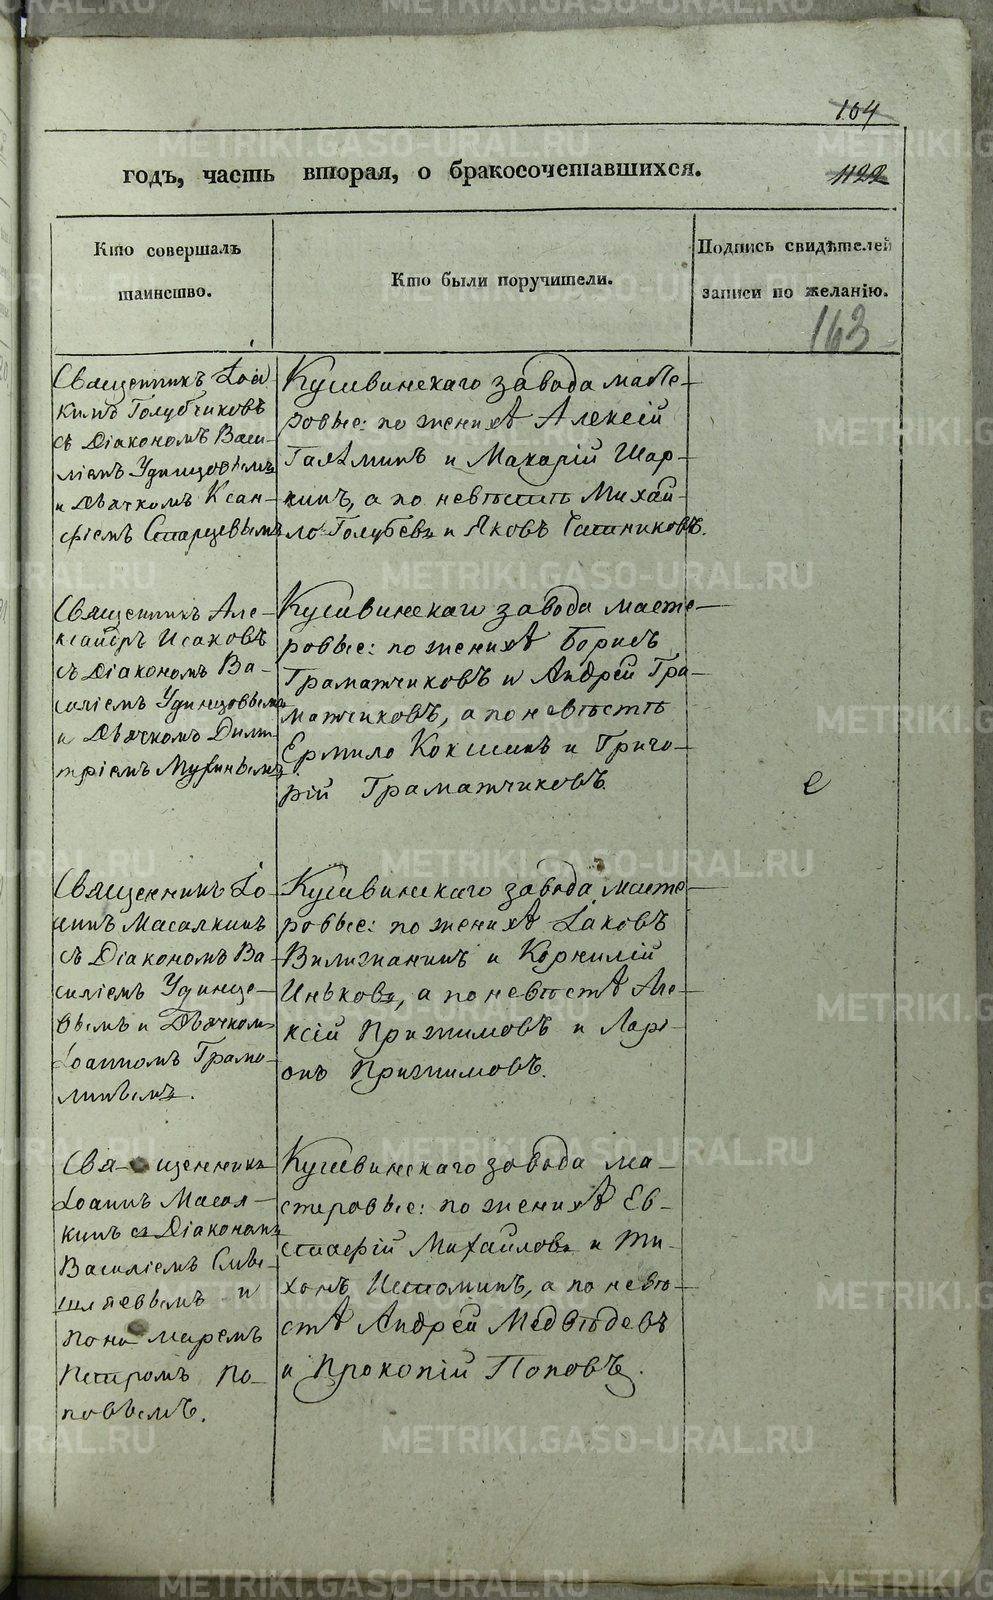 104
годъ, часть вторая, о бракосочетавшихся.
1122
Кто совершалъ
таинство.
Кто были поручители.
Подпись свидѣтелей
записи по желанію.
163
Священникъ Іоа
кимъ Голубчиковъ
съ Діакономъ Васи-
ліемъ Удинцовымъ
и Дьячкомъ Ксан-
фіемъ Старцевымъ
Кушвинскаго завода масте-
ровые: по женихѣ Алексій
и Макарій Шар-
кинъ, а по невѣстѣ Михай-
ло Голубевъ и Яковъ
Священникъ Але-
ксандръ Исаковъ
съ Діакономъ Ва-
силіемъ Удинцовымъ
и Дьячкомъ Дими-
тріемъ Мухинымъ
Кушвинскаго завода масте-
ровые: по женихѣ Борисъ
Граматчиковъ и Андрей Гра-
матчиковъ, а по невѣстѣ
Ермило Кокшинъ и Григо-
рій Граматчиковъ.
Священникъ Іо-
аннъ Масалкинъ
съ Діакономъ Ва
силіемъ Удинце-
вымъ и Дьячкомъ
Іоанномъ Грамо-
линымъ.
Кушвинскаго завода масте-
ровые: по женихѣ Іаковъ
Вилижанинъ и Корнилій
Иньковъ, а по невѣстѣ Але-
ксій Прижимовъ и Ларі-
онъ Прижимовъ.
Священникъ
Іоаннъ Масал-
кинъ съ Діакономъ
Василіемъ
и
понамаремъ
Петромъ По-
повымъ.
Кушвинскаго завода ма-
стеровые: по женихѣ Ев-
стафій Михайловъ и Ти-
хонъ Истоминъ, а по невѣ-
стѣ Андрей Медвѣдевъ
и Прокопій Поповъ.
METRIKI.GASO-URAL.RU